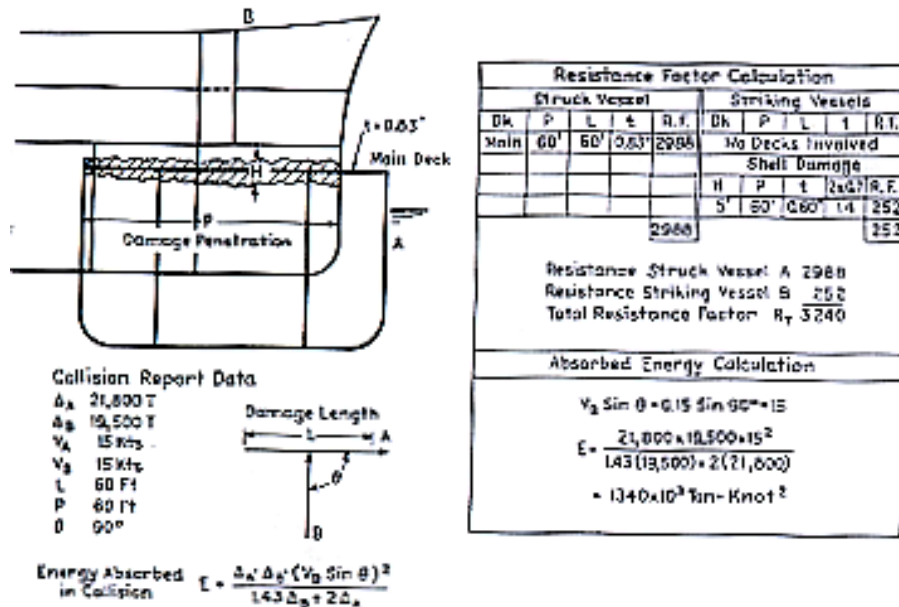 B
t=0.83"
Main Deck
H
P
A
Damage Penetration
Collision Report Data
Δ_A 21,800 T
Δ_B 19,500 T
V_A 15 Kts
V_B 15 Kts
L 60 Ft
P 60 Ft
θ 90°
Damage Length
L A
θ
B
Energy Absorbed
in Collision E = Δ_A·Δ_B·(V_B Sin θ)² / 1.43 Δ_B + 2Δ_A
Resistance Factor Calculation
Struck Vessel Striking Vessels
Dk P L t R.F. Dk P L t R.F.
Main 60' 60' 0.83" 2988 No Decks Involved
Shell Damage
H P t R.F.
5' 60' 0.60" 1.4 252
2988 252
Resistance Struck Vessel A 2988
Resistance Striking Vessel B 252
Total Resistance Factor R_T 3240
Absorbed Energy Calculation
V_B Sin θ = 15 Sin 90° = 15
E = 21,800 x 19,500 x 15² / 1.43(19,500) + 2(21,800)
= 1340x10³ Ton-Knot²